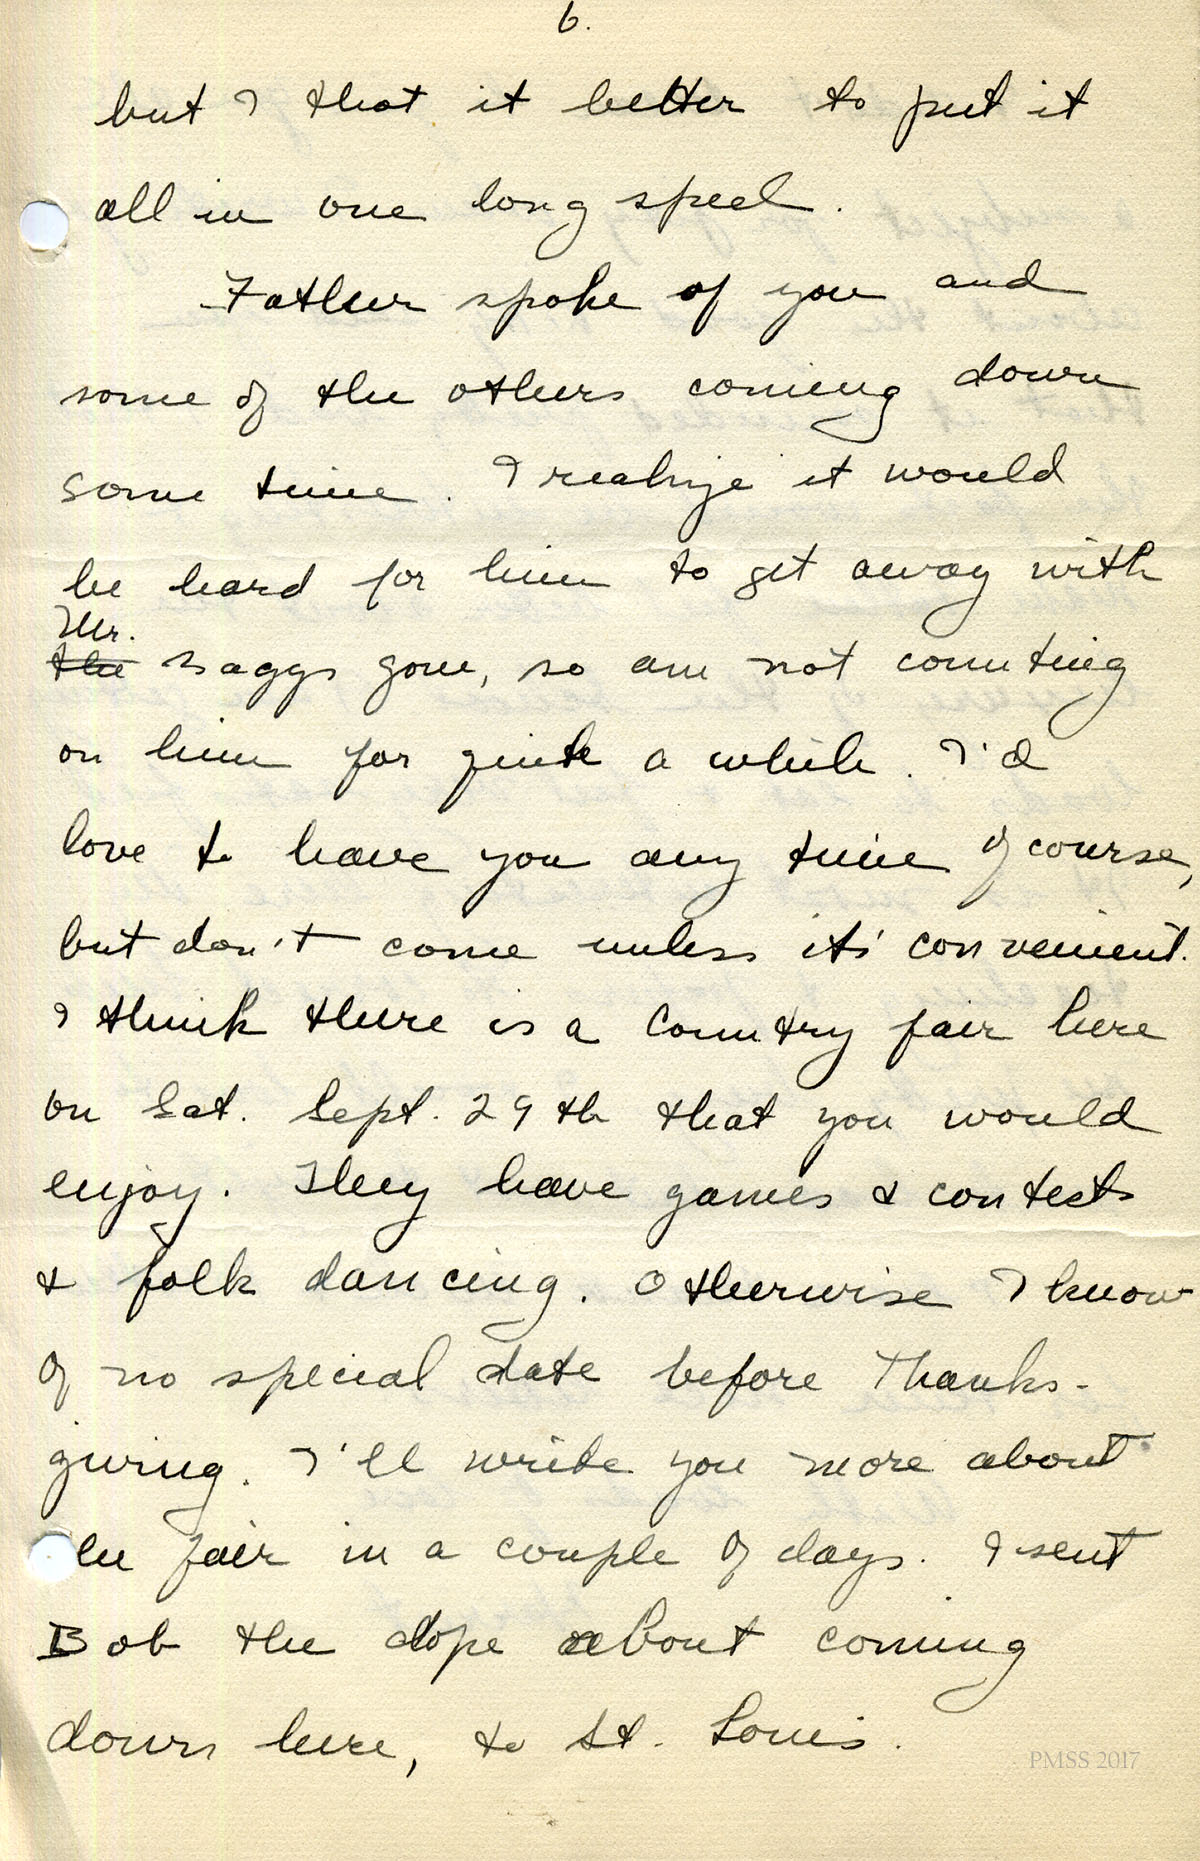 6.
but I that it better to put it
all in one long speel.
Father spoke of you and
some of the others coming down
some time. I realize it would
be hard for him to get away with
Mr.
the Baggs gone, so am not counting
on him for quite a while. I'd
love to have you any time of course,
but don't come unless its' convenient.
I think there is a country fair here
on Sat. Sept. 29th that you would
enjoy. They have games & contests
& folk dancing. Otherwise I know
of no special date before Thanks-
giving. I'll write you more about
he fair in a couple of days. I sent
Bob the dope about coming
down here, to St. Louis.
PMSS 2017